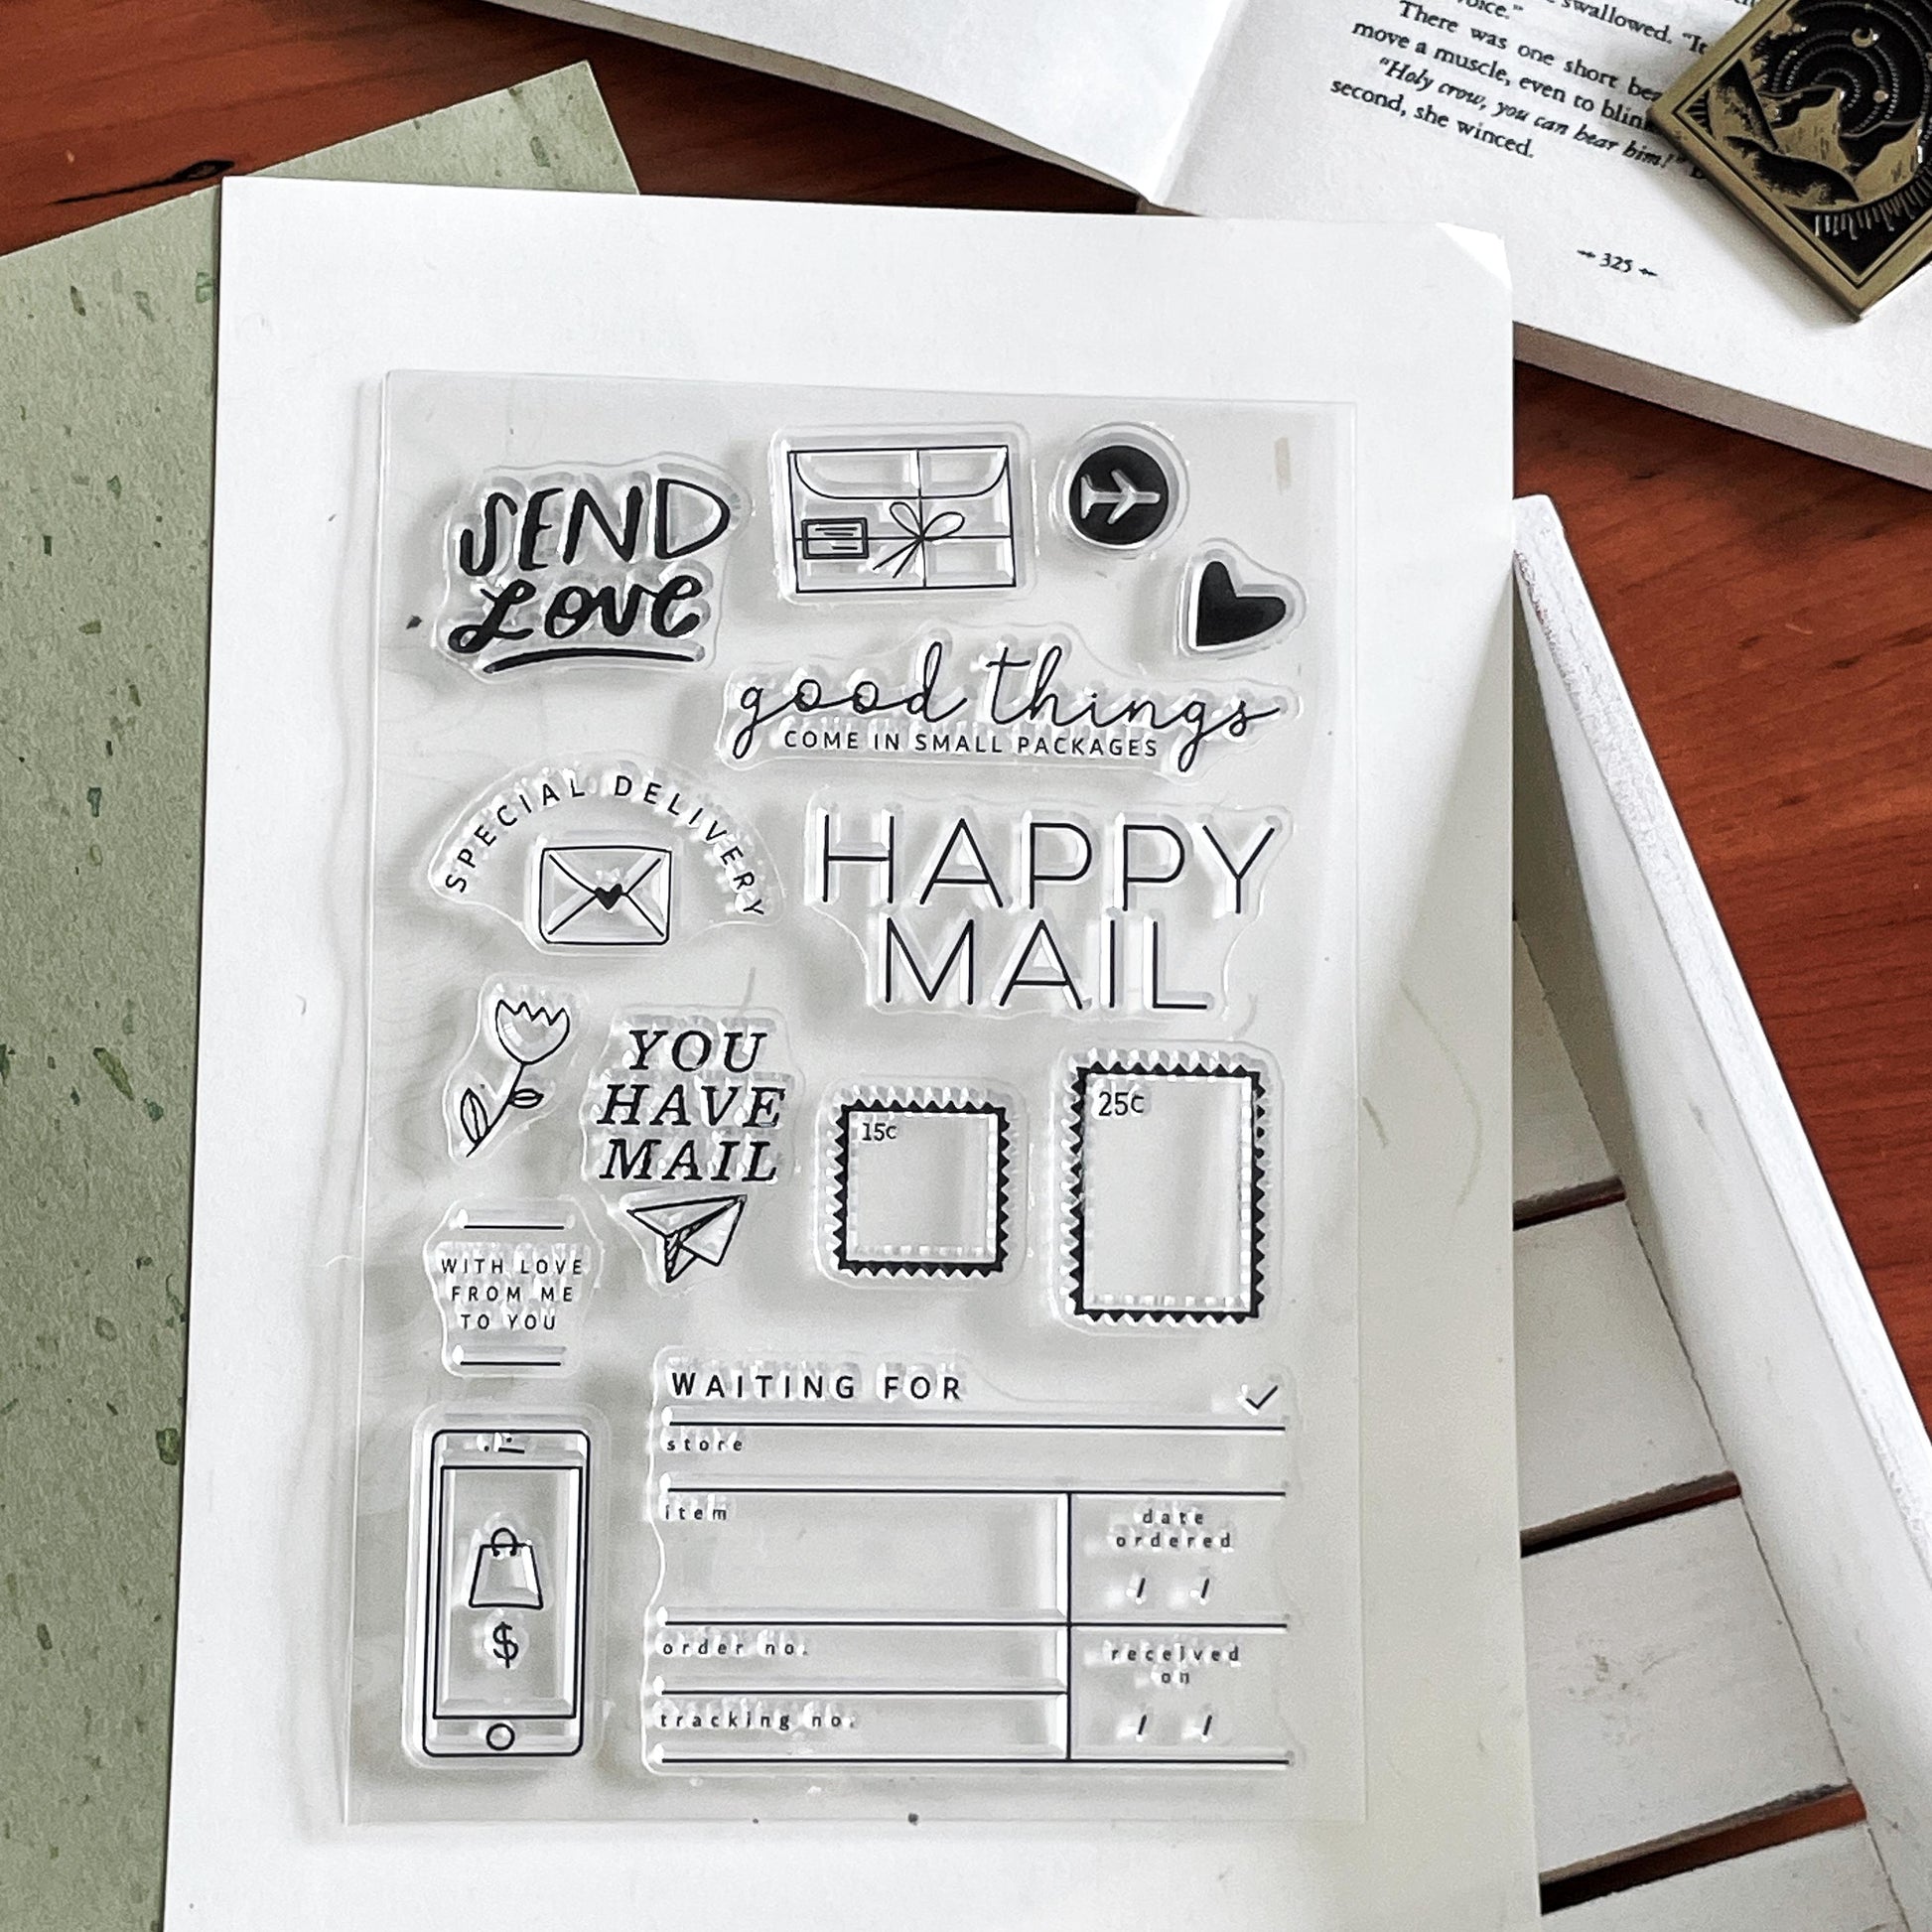 voice."
swallowed. "It
There was one short
move a muscle, even to blink
"Holy crow, you can hear him!"
second, she winced.
325
SEND
LOVE
good things
COME IN SMALL PACKAGES
SPECIAL DELIVERY
HAPPY
MAIL
YOU
HAVE
MAIL
15c
25c
WITH LOVE
FROM ME
TO YOU
WAITING FOR
store
item
date
ordered
/ /
order no.
received
on
tracking no.
/ /
$